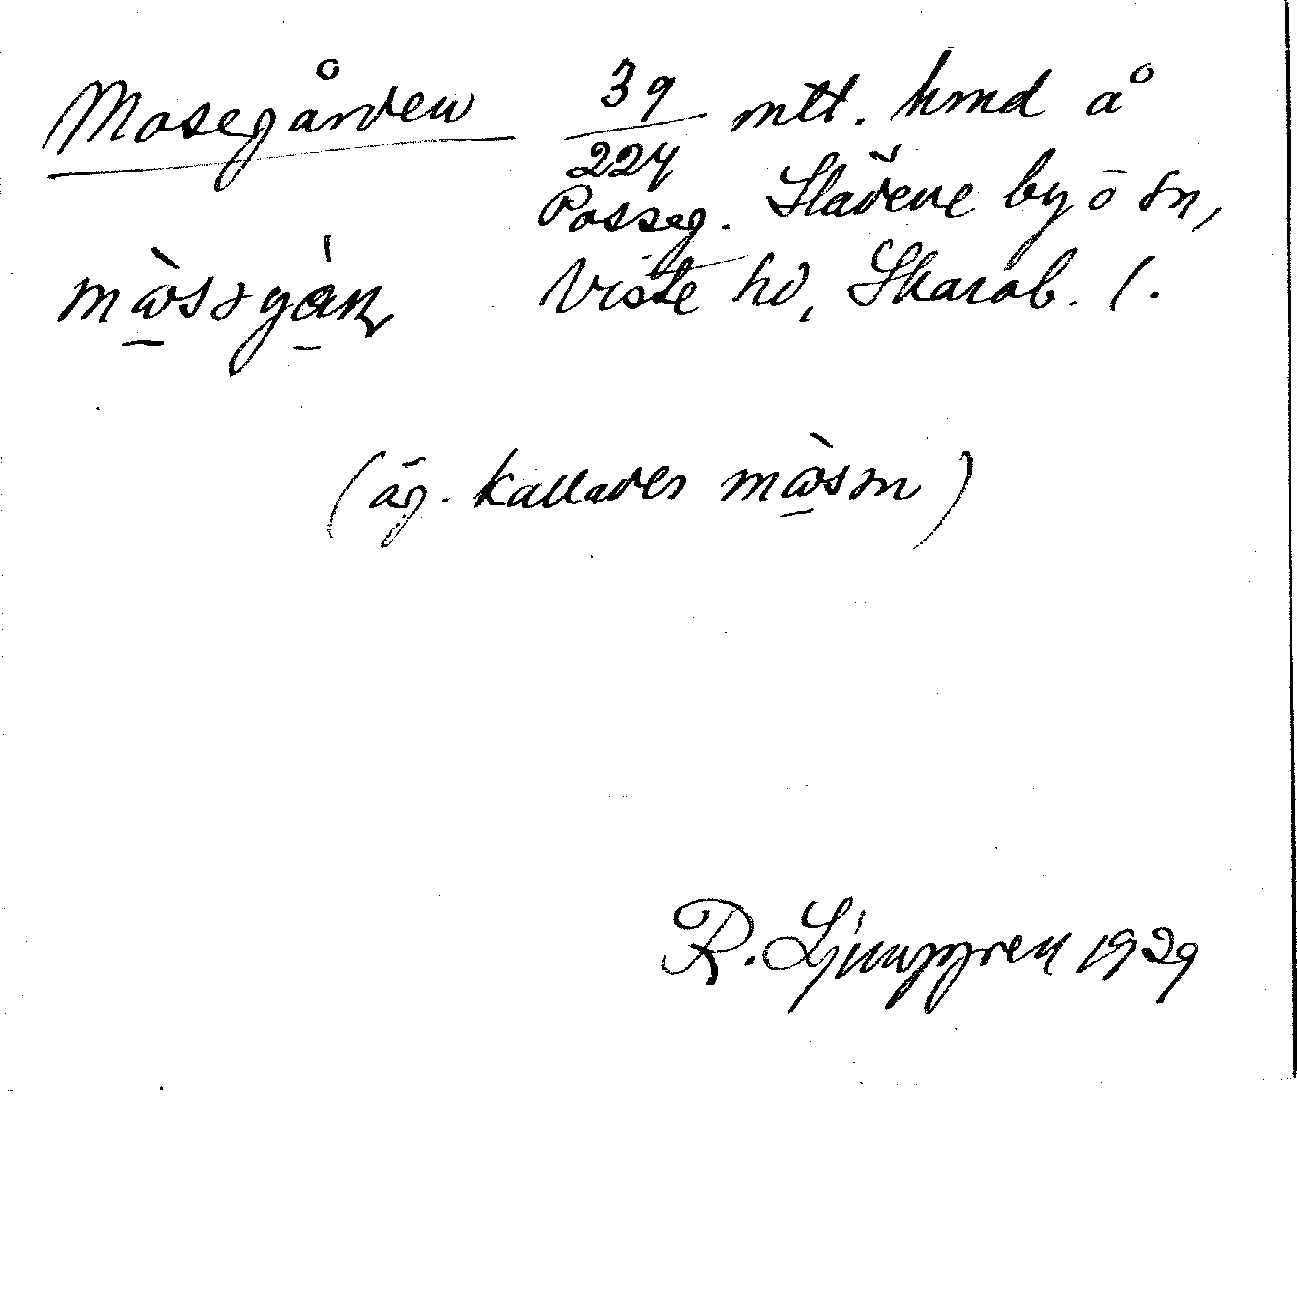 Mosegården 39/224 mtl. hmd å
Posseg. Slädene by o sn,
Viste hd, Skarab. l.
måsəgán
(äg. kallades måsən)
R. Ljunggren 1929